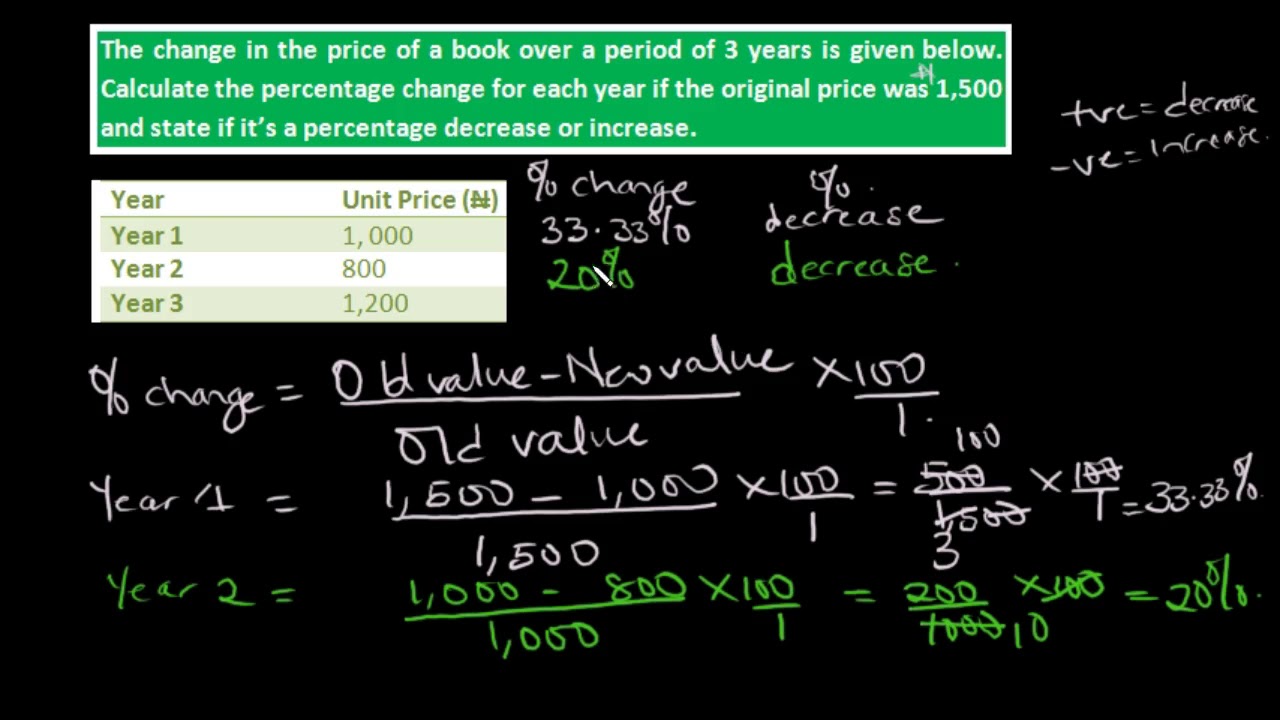 The change in the price of a book over a period of 3 years is given below.
Calculate the percentage change for each year if the original price was ₦1,500
and state if it's a percentage decrease or increase.
+ve = decrease
-ve = increase.
Year Unit Price (₦)
Year 1 1, 000
Year 2 800
Year 3 1,200
% change % .
33.33% decrease
20% decrease .
% change = Old value - New value × 100
Old value 1 .
100
Year 1 = 1,500 - 1,000 × 100 = 500 × 100 = 33.33%.
1,500 1 1,500 1
3
Year 2 = 1,000 - 800 × 100 = 200 × 100 = 20%.
1,000 1 1000 10